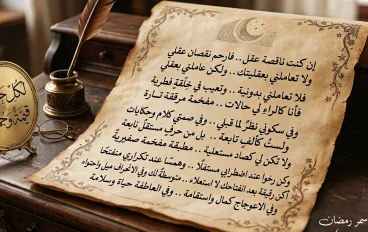 إن كنت ناقصة عقل .. فارحم نقصان عقلي
ولا تعاملني بعقليتك .. ولكن عاملني بعقلي
فلا تعاملني بدونية .. وتعيب في خلقة فطرية
فأنا كالراء في حالات .. مفخمة مرققة تارة
وفي سكوني نظرٌ لما قبلي .. وفي صمتي كلام وحكايات
ولستُ كألف تابعة .. بل من حرفٍ مستقلٍ نابعة
ولا تكن لي كصاد مستعلية .. مطبقة مفخمة صفيرية
وكن رخوا عند اضطرابي مستفلًا .. وهمسا عند تكراري منفتحًا
أكن رقيقة بعد انفتاحك لا استعلاء .. متوسطة لك وفي الانحراف ميل واحتواء
وفي الاعوجاج كمال واستقامة .. وفي العاطفة حياة وسلامة
سمر رمضان